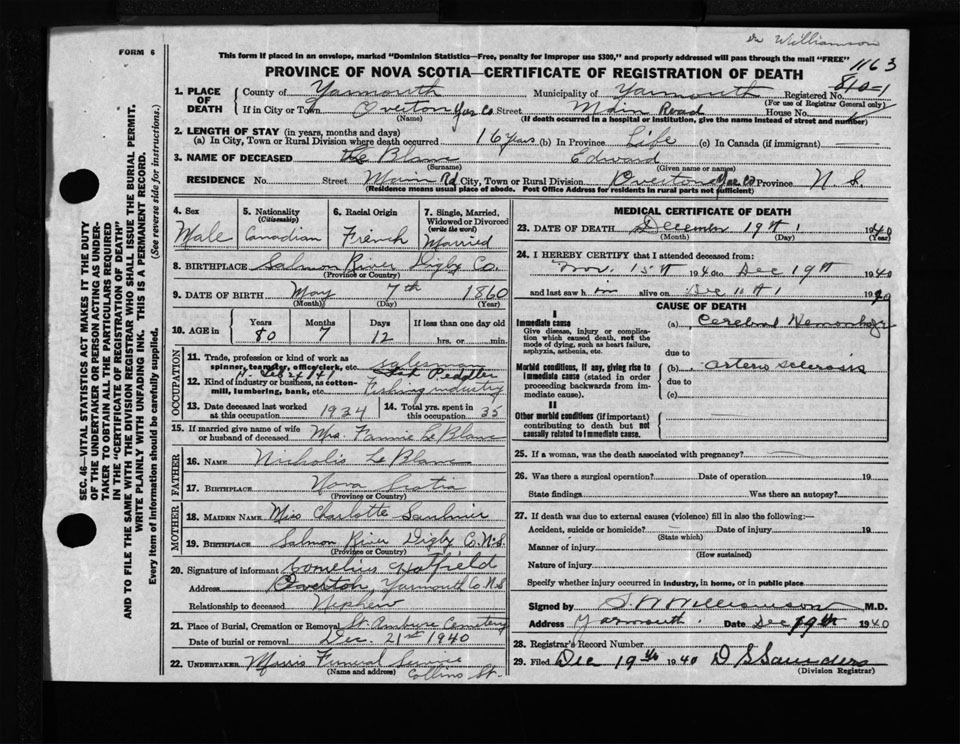 Dr Williamson
FORM 6
This form if placed in an envelope, marked "Dominion Statistics—Free, penalty for improper use $300," and properly addressed will pass through the mail "FREE"
1163
PROVINCE OF NOVA SCOTIA—CERTIFICATE OF REGISTRATION OF DEATH
1. PLACE OF DEATH County of Yarmouth Municipality of Yarmouth Registered No.
(For use of Registrar General only)
If in City or Town Overton Yar. Co Street Main Road House No.
(Name) (If death occurred in a hospital or institution, give the name instead of street and number)
2. LENGTH OF STAY (in years, months and days)
(a) In City, Town or Rural Division where death occurred 16 years (b) In Province Life (c) In Canada (if immigrant) —
3. NAME OF DECEASED Le Blanc Edward
(Surname) (Given name or names)
RESIDENCE No. Street Main Rd City, Town or Rural Division Overton Yar. Co Province N. S
(Residence means usual place of abode. Post Office Address for residents in rural parts not sufficient)
4. Sex 5. Nationality (Citizenship) 6. Racial Origin 7. Single, Married, Widowed or Divorced (write the word)
Male Canadian French Married
8. BIRTHPLACE Salmon River Digby Co.
(Province or Country)
9. DATE OF BIRTH May 7th 1860
(Month) (Day) (Year)
10. AGE in Years Months Days If less than one day old
80 7 12 hrs. or min.
OCCUPATION
11. Trade, profession or kind of work as spinner, teamster, office clerk, etc. Fish Peddler
12. Kind of industry or business, as cotton-mill, lumbering, bank, etc. Fishing industry
13. Date deceased last worked at this occupation 1934 14. Total yrs. spent in this occupation 35
15. If married give name of wife or husband of deceased Mrs. Fannie Le Blanc
FATHER
16. NAME Nicholis Le Blanc
17. BIRTHPLACE Nova Scotia
(Province or Country)
MOTHER
18. MAIDEN NAME Miss Charlotte Saulnier
19. BIRTHPLACE Salmon River Digby Co. N.S.
(Province or Country)
20. Signature of informant Cornelius Hatfield
Address Overton, Yarmouth Co. N.S
Relationship to deceased Nephew
21. Place of Burial, Cremation or Removal St. Ambrose Cemetery
Date of burial or removal Dec. 21st 1940
22. UNDERTAKER Morris Funeral Service
(Name and address) Collins St.
MEDICAL CERTIFICATE OF DEATH
23. DATE OF DEATH December 19th 1940
(Month) (Day) (Year)
24. I HEREBY CERTIFY that I attended deceased from:
Nov. 15th 1940 to Dec 19th 1940
and last saw him alive on Dec 11th 1940
CAUSE OF DEATH
I
Immediate cause
Give disease, injury or complication which caused death, not the mode of dying, such as heart failure, asphyxia, asthenia, etc.
(a) Cerebral Hemorrhage
due to
Morbid conditions, if any, giving rise to immediate cause (stated in order proceeding backwards from immediate cause).
(b) arterio sclerosis
due to
(c)
II
Other morbid conditions (if important) contributing to death but not causally related to immediate cause.
25. If a woman, was the death associated with pregnancy?
26. Was there a surgical operation? Date of operation 19
State findings Was there an autopsy?
27. If death was due to external causes (violence) fill in also the following:—
Accident, suicide or homicide? Date of injury 19
(State which)
Manner of injury
(How sustained)
Nature of injury
Specify whether injury occurred in industry, in home, or in public place
Signed by S W Williamson M.D.
Address Yarmouth. Date Dec 19th 1940
28. Registrar's Record Number
29. Filed Dec 19th 1940 D S Saunders
(Division Registrar)
SEC. 46—VITAL STATISTICS ACT MAKES IT THE DUTY
OF THE UNDERTAKER OR PERSON ACTING AS UNDER-
TAKER TO OBTAIN ALL THE PARTICULARS REQUIRED
IN THE "CERTIFICATE OF REGISTRATION OF DEATH"
AND TO FILE THE SAME WITH THE DIVISION REGISTRAR WHO SHALL ISSUE THE BURIAL PERMIT.
WRITE PLAINLY WITH UNFADING INK. THIS IS A PERMANENT RECORD.
Every item of information should be carefully supplied. (See reverse side for instructions.)